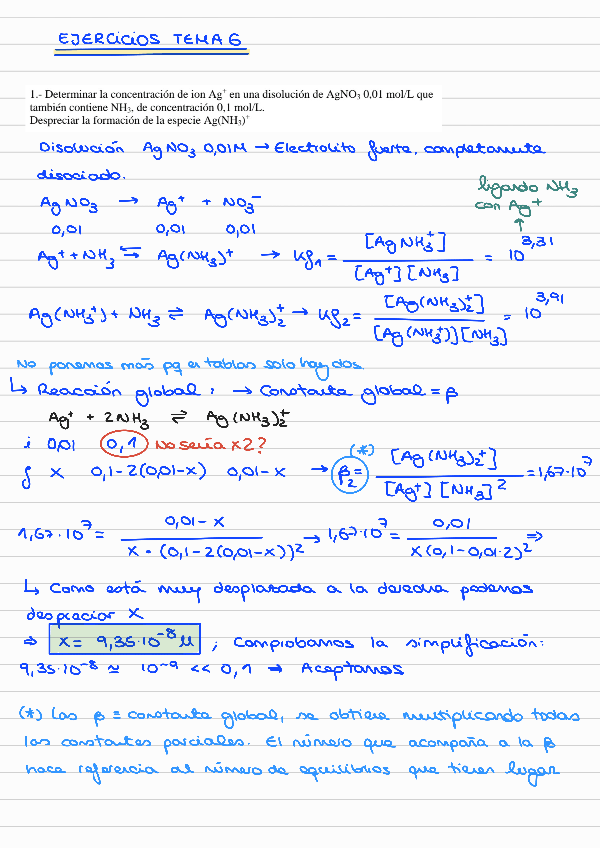 EJERCICIOS TEMA 6
1.- Determinar la concentración de ion Ag⁺ en una disolución de AgNO₃ 0,01 mol/L que
también contiene NH₃, de concentración 0,1 mol/L.
Despreciar la formación de la especie Ag(NH₃)⁺
Disolución AgNO₃ 0,01M → Electrolito fuerte, completamente
disociado.
ligando NH₃
con Ag⁺
AgNO₃ → Ag⁺ + NO₃⁻
0,01 0,01 0,01
Ag⁺ + NH₃ ⇌ Ag(NH₃)⁺ → Kf₁ = [AgNH₃⁺] / [Ag⁺][NH₃] = 10^3,31
Ag(NH₃⁺) + NH₃ ⇌ Ag(NH₃)₂⁺ → Kf₂ = [Ag(NH₃)₂⁺] / [Ag(NH₃⁺)][NH₃] = 10^3,91
No ponemos más pq en tablas solo hay dos.
↳ Reacción global: → Constante global = β
Ag⁺ + 2NH₃ ⇌ Ag(NH₃)₂⁺
i 0,01 0,1 No sería x2?
f x 0,1-2(0,01-x) 0,01-x → (*) β₂ = [Ag(NH₃)₂⁺] / [Ag⁺][NH₃]² = 1,67·10⁷
1,67·10⁷ = 0,01-x / x·(0,1-2(0,01-x))² → 1,67·10⁷ = 0,01 / x(0,1-0,01·2)² ⇒
↳ Como está muy desplazada a la derecha podemos
despreciar x
⇒ x = 9,35·10⁻⁸ M ; Comprobamos la simplificación:
9,35·10⁻⁸ ≃ 10⁻⁹ << 0,1 → Aceptamos
(*) Las β = constante global, se obtiene multiplicando todas
las constantes parciales. El número que acompaña a la β
hace referencia al número de equilibrios que tienen lugar